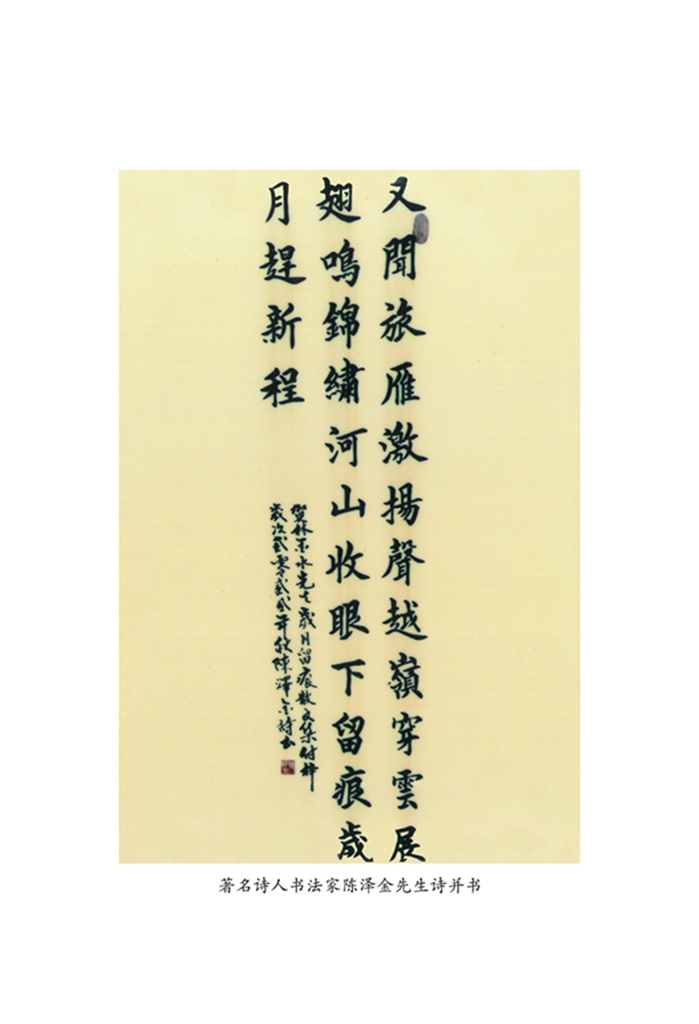 又聞旅雁激揚聲越嶺穿雲展
翅鳴錦繡河山收眼下留痕歲
月趕新程
賀林墨水先生歲月留痕散文集付梓
歲次貳零貳貳年秋陳澤金詩書
著名诗人书法家陈泽金先生诗并书